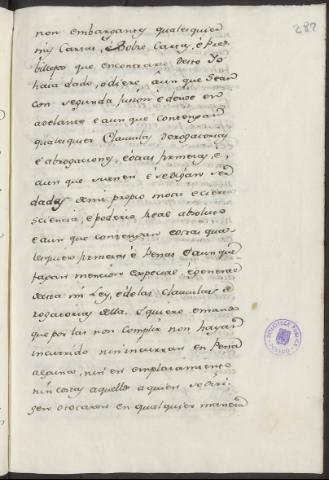 287
non embargantes qualesquier
mis Cartas, e Sobre Cartas, e Pre
billegios que en contrario desto Yo
haia dado, o diere, aun que Sean
con segunda jusion e dende en
adelante e aun que contengan
qualesquier Clausulas derogatorias
e abrogaciones, e otras firmezas, e,
aun que suenen e se dijan ser
dadas de mi propio motu e cierta
sciencia, e poderio Real absoluto
e aun que contengan otras qua
lesquier firmezas e Penas e aun que
fagan mencion Especial, e general
desta mi Ley, e de las clausulas de
rogatorias della. E quiero e mando
que por las non Complir non hayan
incurrido nin incurran en Pena
alguna, nin en emplazamiento
nin costas aquellos a quien se diri
gen o tocaren en qualquier manera
BIBLIOTECA PUBLICA